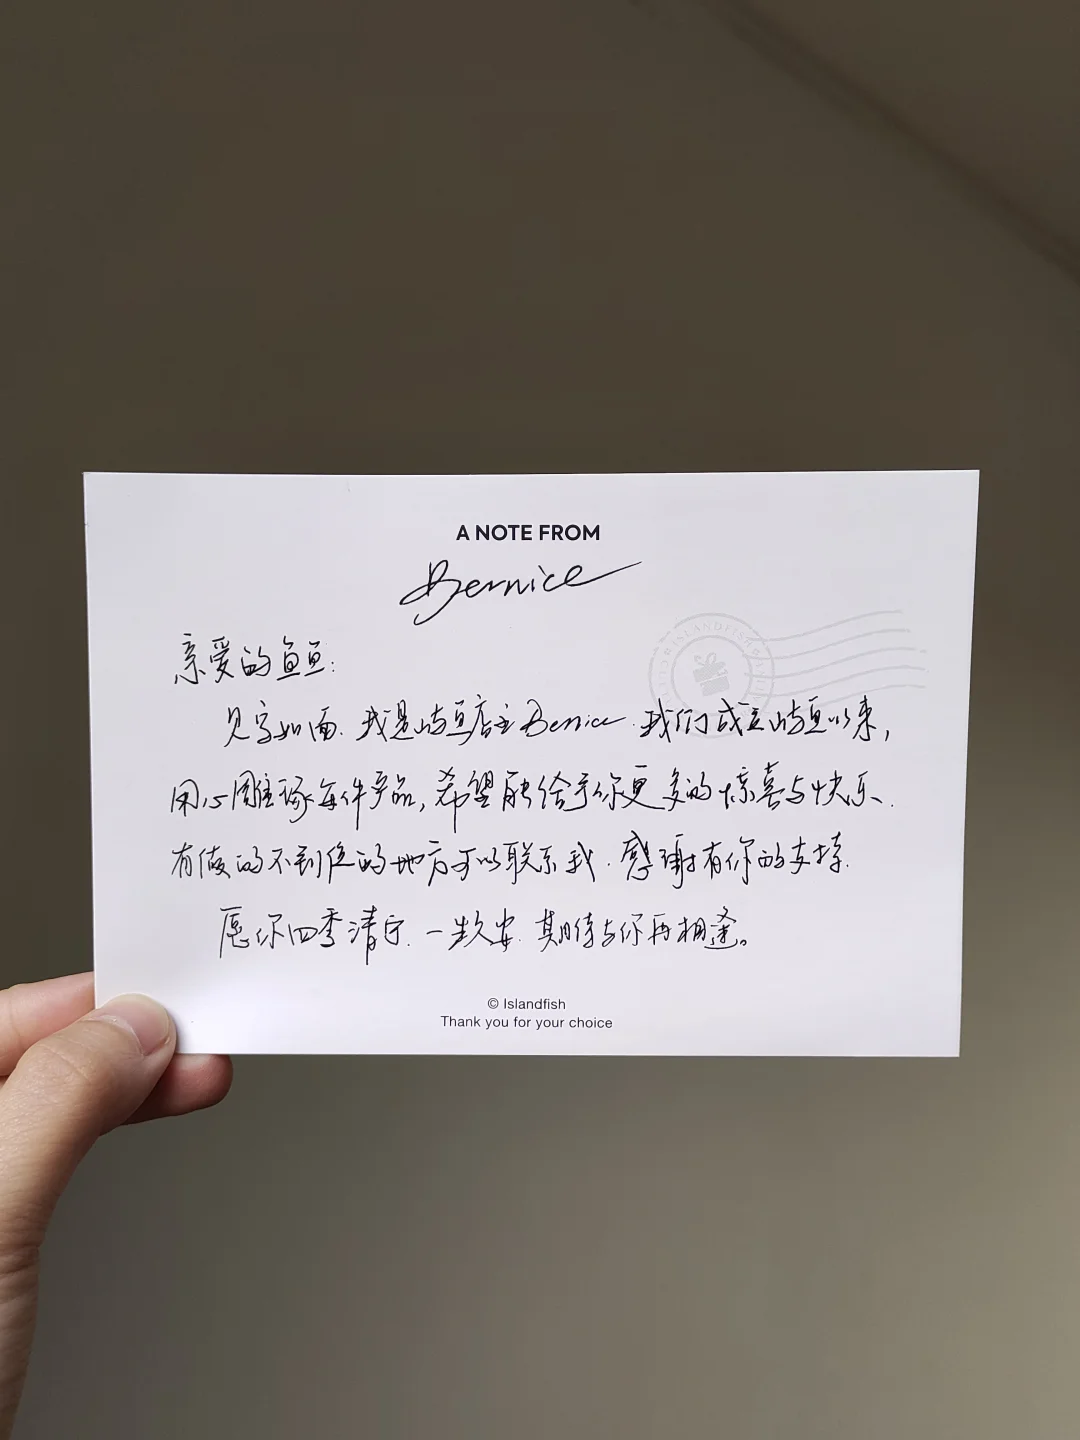 A NOTE FROM
Bernice
亲爱的鱼鱼:
见字如面. 我是屿鱼店主Bernice. 我们成立屿鱼以来,
用心雕琢每件产品, 希望能给予你更多的惊喜与快乐.
有做的不到位的地方可以联系我. 感谢有你的支持.
愿你四季清宁. 一生久安. 期待与你再相逢。
ISLANDFISH
© Islandfish
Thank you for your choice